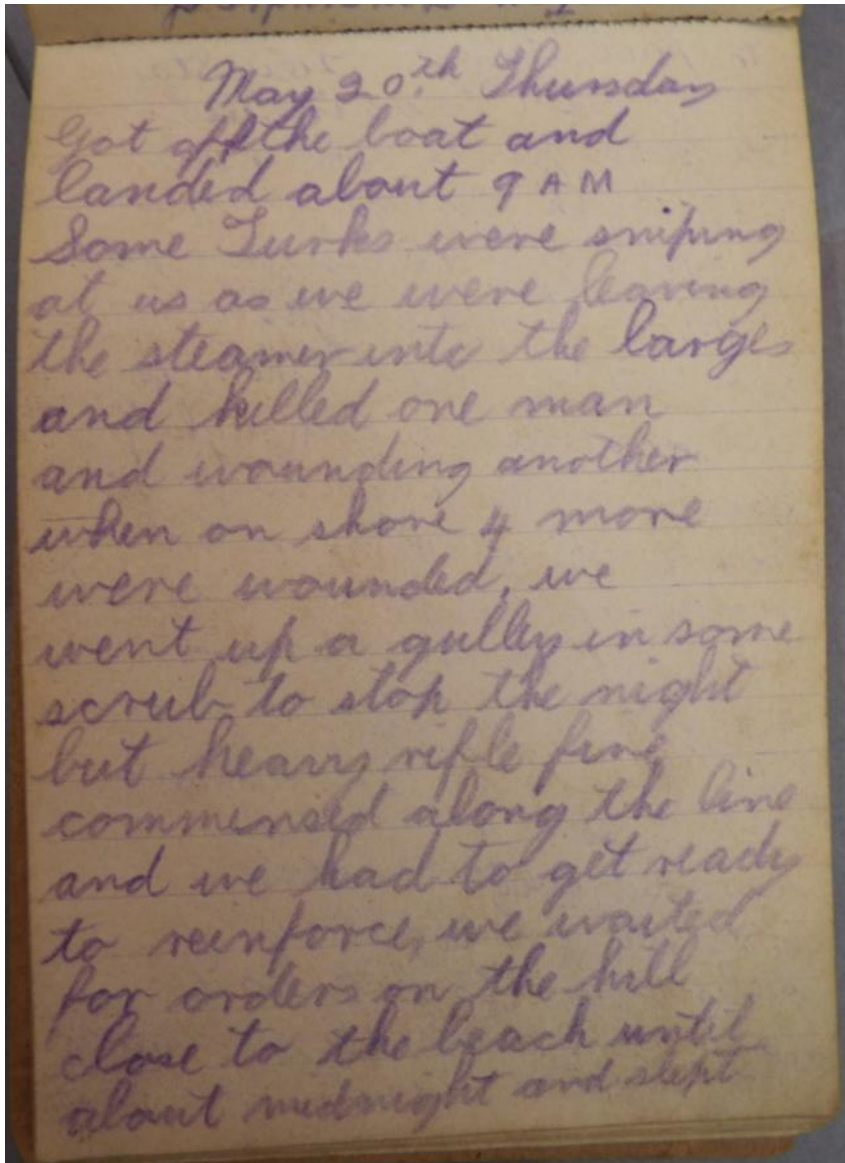 May 20th Thursday
Got off the boat and
landed about 9 AM
Some Turks were sniping
at us as we were leaving
the steamer into the barges
and killed one man
and wounding another
when on shore 4 more
were wounded, we
went up a gulley in some
scrub to stop the night
but heavy rifle fire
commensed along the line
and we had to get ready
to reinforce, we waited
for orders on the hill
close to the beach until
about midnight and slept